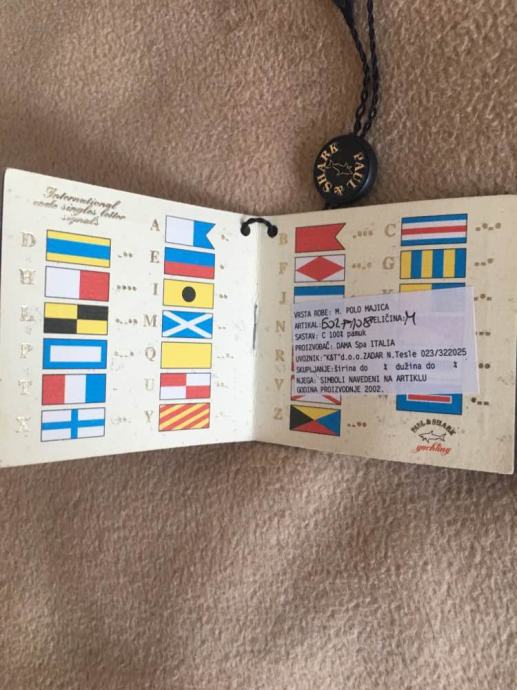 PAUL & SHARK
International
code singles letter
signals
A
D
E
H
I
L
M
P
Q
T
U
X
Y
B
C
F
G
J
N
R
V
Z
VRSTA ROBE: M. POLO MAJICA
ARTIKAL: VELIČINA: M
SASTAV: C 100% pamuk
PROIZVOĐAČ: DAMA Spa ITALIA
UVOZNIK:"K&T"d.o.o.ZADAR N.Tesle 023/322025
SKUPLJANJE:širina do % dužina do %
NJEGA: SIMBOLI NAVEDENI NA ARTIKLU
GODINA PROIZVODNJE 2002.
PAUL & SHARK
yachting